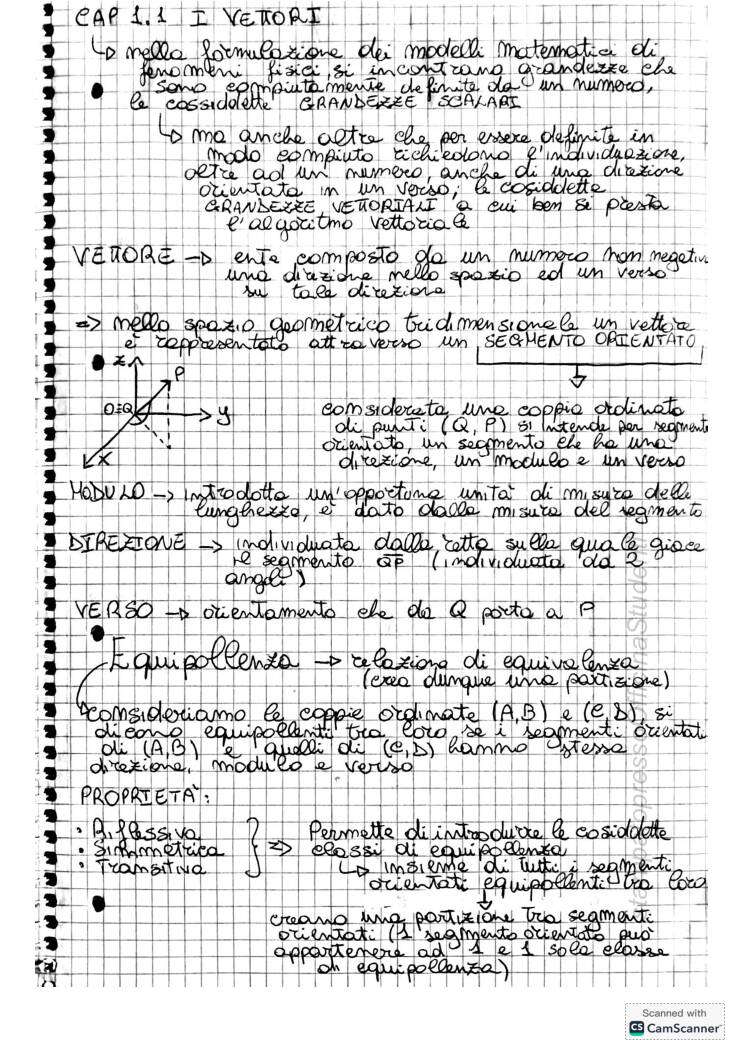 CAP 1.1 I VETTORI
↳ nella formulazione dei modelli matematici di
fenomeni fisici, si incontrano grandezze che
sono compiutamente definite da un numero,
le cossiddette GRANDEZZE SCALARI
↳ ma anche altre che per essere definite in
modo compiuto richiedono l'individuazione,
oltre ad un numero, anche di una direzione
orientata in un verso; le cosiddette
GRANDEZZE VETTORIALI a cui ben si presta
l'algoritmo vettoriale
VETTORE → ente composto da un numero non negativo
una direzione nello spazio ed un verso
su tale direzione
=> nello spazio geometrico tridimensionale un vettore
è rappresentato attraverso un SEGMENTO ORIENTATO
z P
O≡Q y
x
considerata una coppia ordinata
di punti (Q, P) si intende per segmento
orientato, un segmento che ha una
direzione, un modulo e un verso
MODULO → introdotta un'opportuna unità di misura delle
lunghezza, è dato dalla misura del segmento
DIREZIONE → individuata dalla retta sulla quale giace
il segmento QP (individuata da 2
angoli)
VERSO → orientamento che da Q porta a P
Equipollenza → relazione di equivalenza
(crea dunque una partizione)
↳ consideriamo le coppie ordinate (A,B) e (C,D), si
dicono equipollenti tra loro se i segmenti orientati
di (A,B) e quelli di (C,D) hanno stessa
direzione, modulo e verso
PROPRIETÀ:
• Riflessiva
• Simmetrica
• Transitiva
=> Permette di introdurre le cosiddette
classi di equipollenza
↳ insieme di tutti i segmenti
orientati equipollenti tra loro
creano una partizione tra segmenti
orientati (1 segmento orientato può
appartenere ad 1 e 1 sola classe
di equipollenza)
Scanned with
CS CamScanner